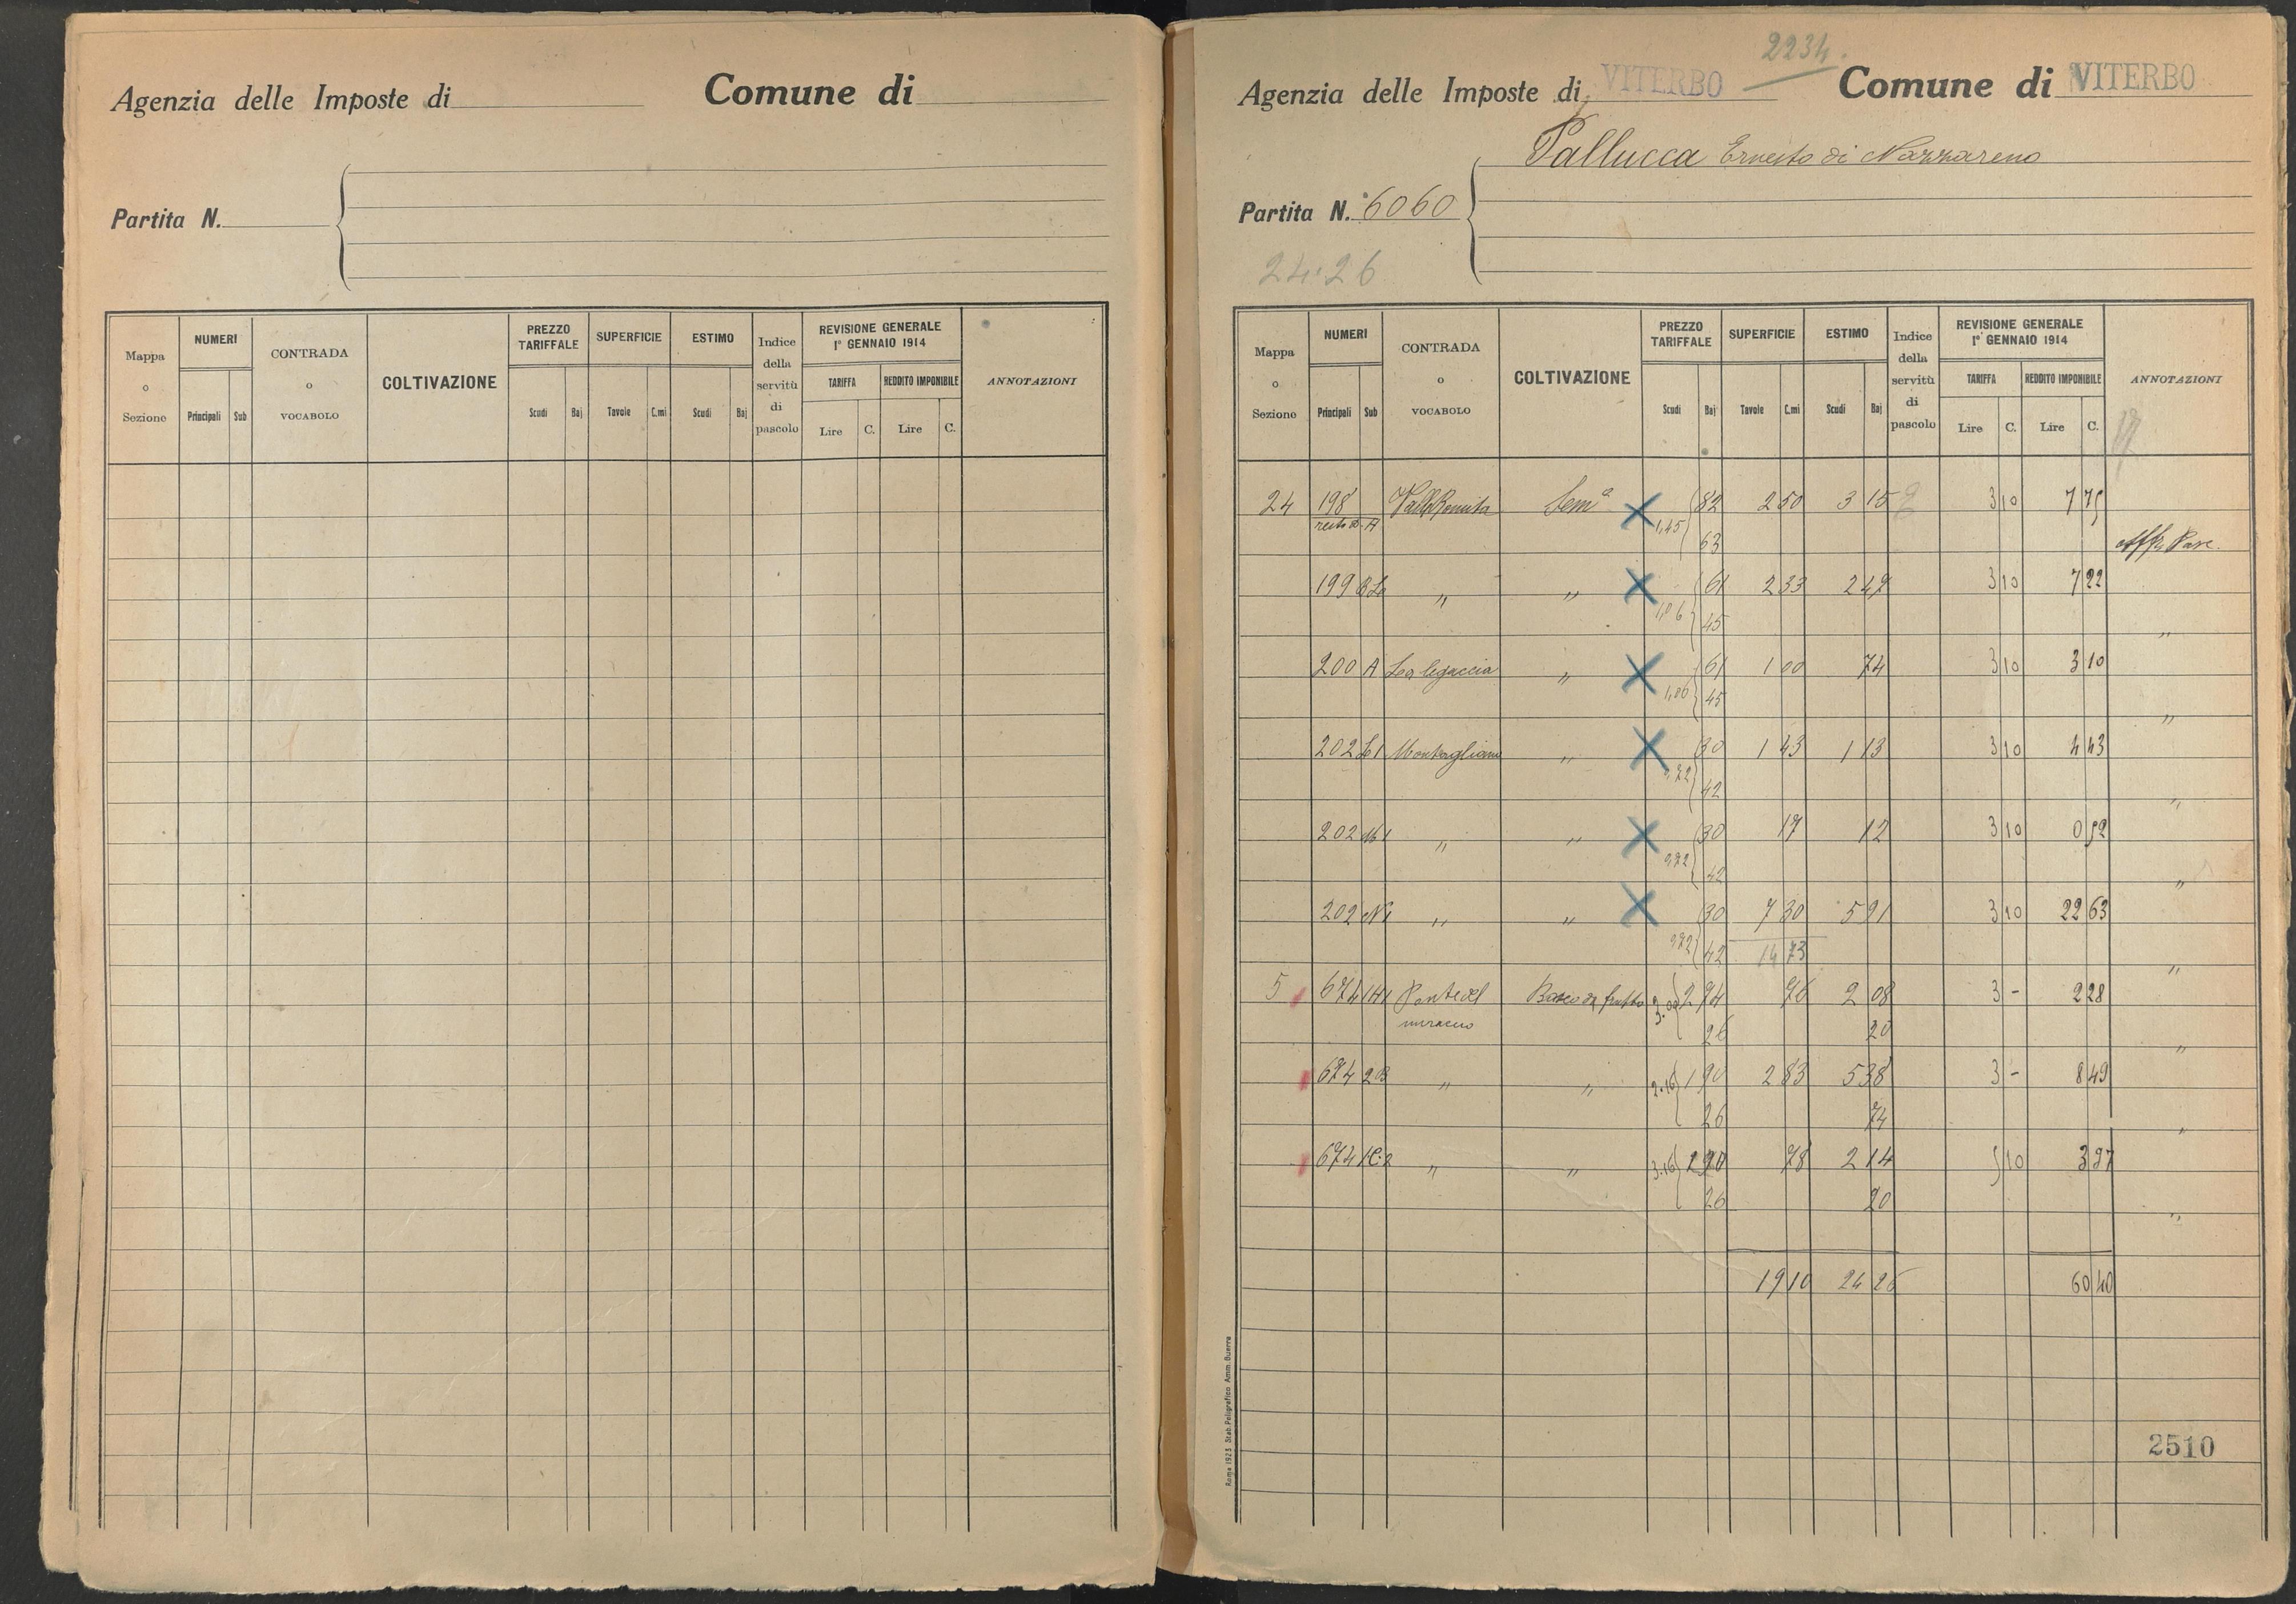 Agenzia delle Imposte di Comune di
Partita N.
Mappa o Sezione NUMERI CONTRADA o VOCABOLO COLTIVAZIONE PREZZO TARIFFALE SUPERFICIE ESTIMO Indice della servitù di pascolo REVISIONE GENERALE 1° GENNAIO 1914 ANNOTAZIONI
TARIFFA REDDITO IMPONIBILE
Principali Sub Scudi Baj Tavole C.mi Scudi Baj Lire C. Lire C.
2234.
Agenzia delle Imposte di VITERBO Comune di VITERBO
Pallucca Ernesto di Nazzareno
Partita N. 6060
24:26
Mappa o Sezione NUMERI CONTRADA o VOCABOLO COLTIVAZIONE PREZZO TARIFFALE SUPERFICIE ESTIMO Indice della servitù di pascolo REVISIONE GENERALE 1° GENNAIO 1914 ANNOTAZIONI
TARIFFA REDDITO IMPONIBILE
Principali Sub Scudi Baj Tavole C.mi Scudi Baj Lire C. Lire C.
24 198 Sem.° 82 2 50 3 15 2 3 10 7 75
resto A 1,45 63
199 " " 61 2 33 2 47 3 10 7 22
1,06 45 "
200 A La legaccia " 61 1 00 74 3 10 3 10
1,06 45 "
202 L1 Montigliano " 30 1 43 1 13 3 10 4 43
0,72 42 "
202 M1 " " 30 17 12 3 10 0 52
0,72 42 "
202 N1 " " 30 7 30 5 91 3 10 22 63
0,72 42 14 73 "
5 674 1H1 Ponte del Bosco da frutto 3.00 2 74 76 2 08 3 - 2 28
26 20 "
674 2B " " 2.16 1 90 2 83 5 38 3 - 8 49
26 74 "
674 1C2 " " 3.16 2 90 78 2 14 5 10 3 97
26 20 "
19 10 24 26 60 40
Roma 1923 Stab. Poligrafico Amm. Guerra
2510